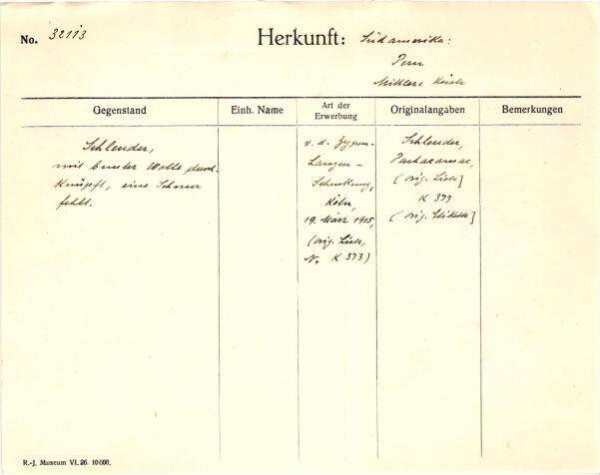 No. 32113
Herkunft: Südamerika:
Peru
Mittlere Küste
Gegenstand
Einh. Name
Art der
Erwerbung
Originalangaben
Bemerkungen
Schleuder,
mit bunter Wolle durch-
knüpft, eine Schnur
fehlt.
v. d. Zypen-
Langen-
Schenkung,
Köln,
19. März 1915,
(orig. Liste,
N. K 373)
Schleuder,
Pachacamac,
(orig. Liste]
K 373
(orig. Etikette]
R.-J. Museum VI. 26. 10000.